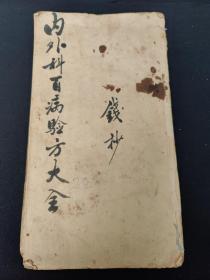 内外科百病验方大全
錢抄